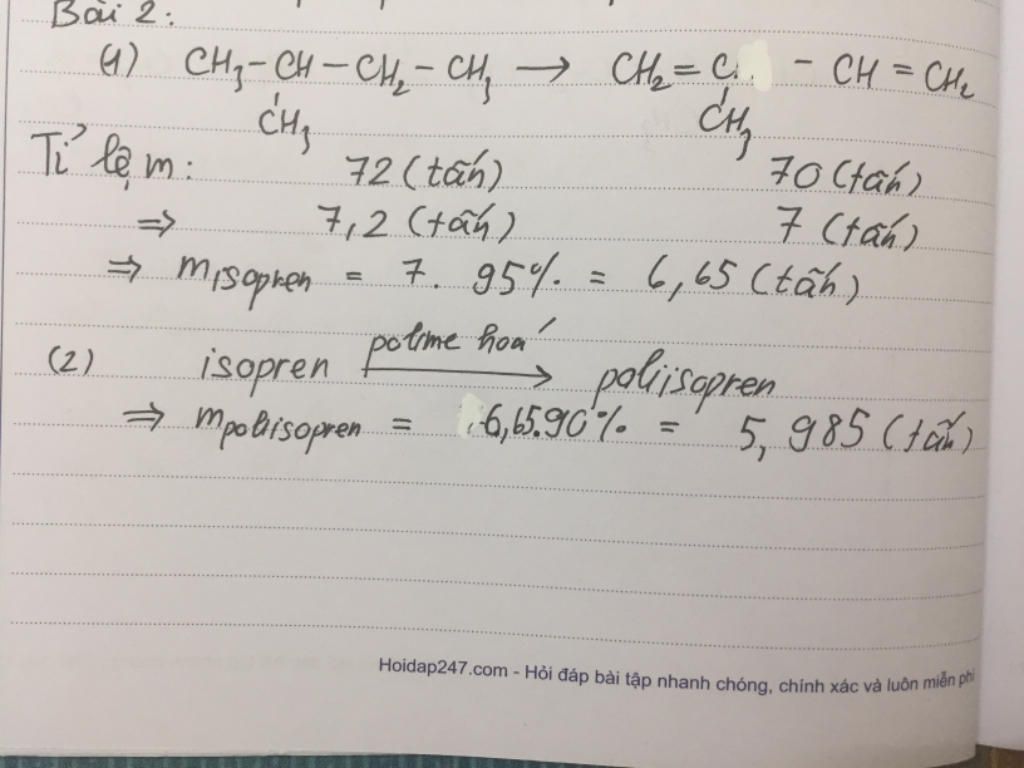 Bài 2:
(1) CH₃ – CH – CH₂ – CH₃ → CH₂ = C – CH = CH₂
CH₃ CH₃
Tỉ lệ m: 72 (tấn) 70 (tấn)
⇒ 7,2 (tấn) 7 (tấn)
⇒ m isopren = 7. 95% = 6,65 (tấn)
(2) isopren polime hoá → poliisopren
⇒ m poliisopren = 6,65.90% = 5,985 (tấn)
Hoidap247.com - Hỏi đáp bài tập nhanh chóng, chính xác và luôn miễn phí